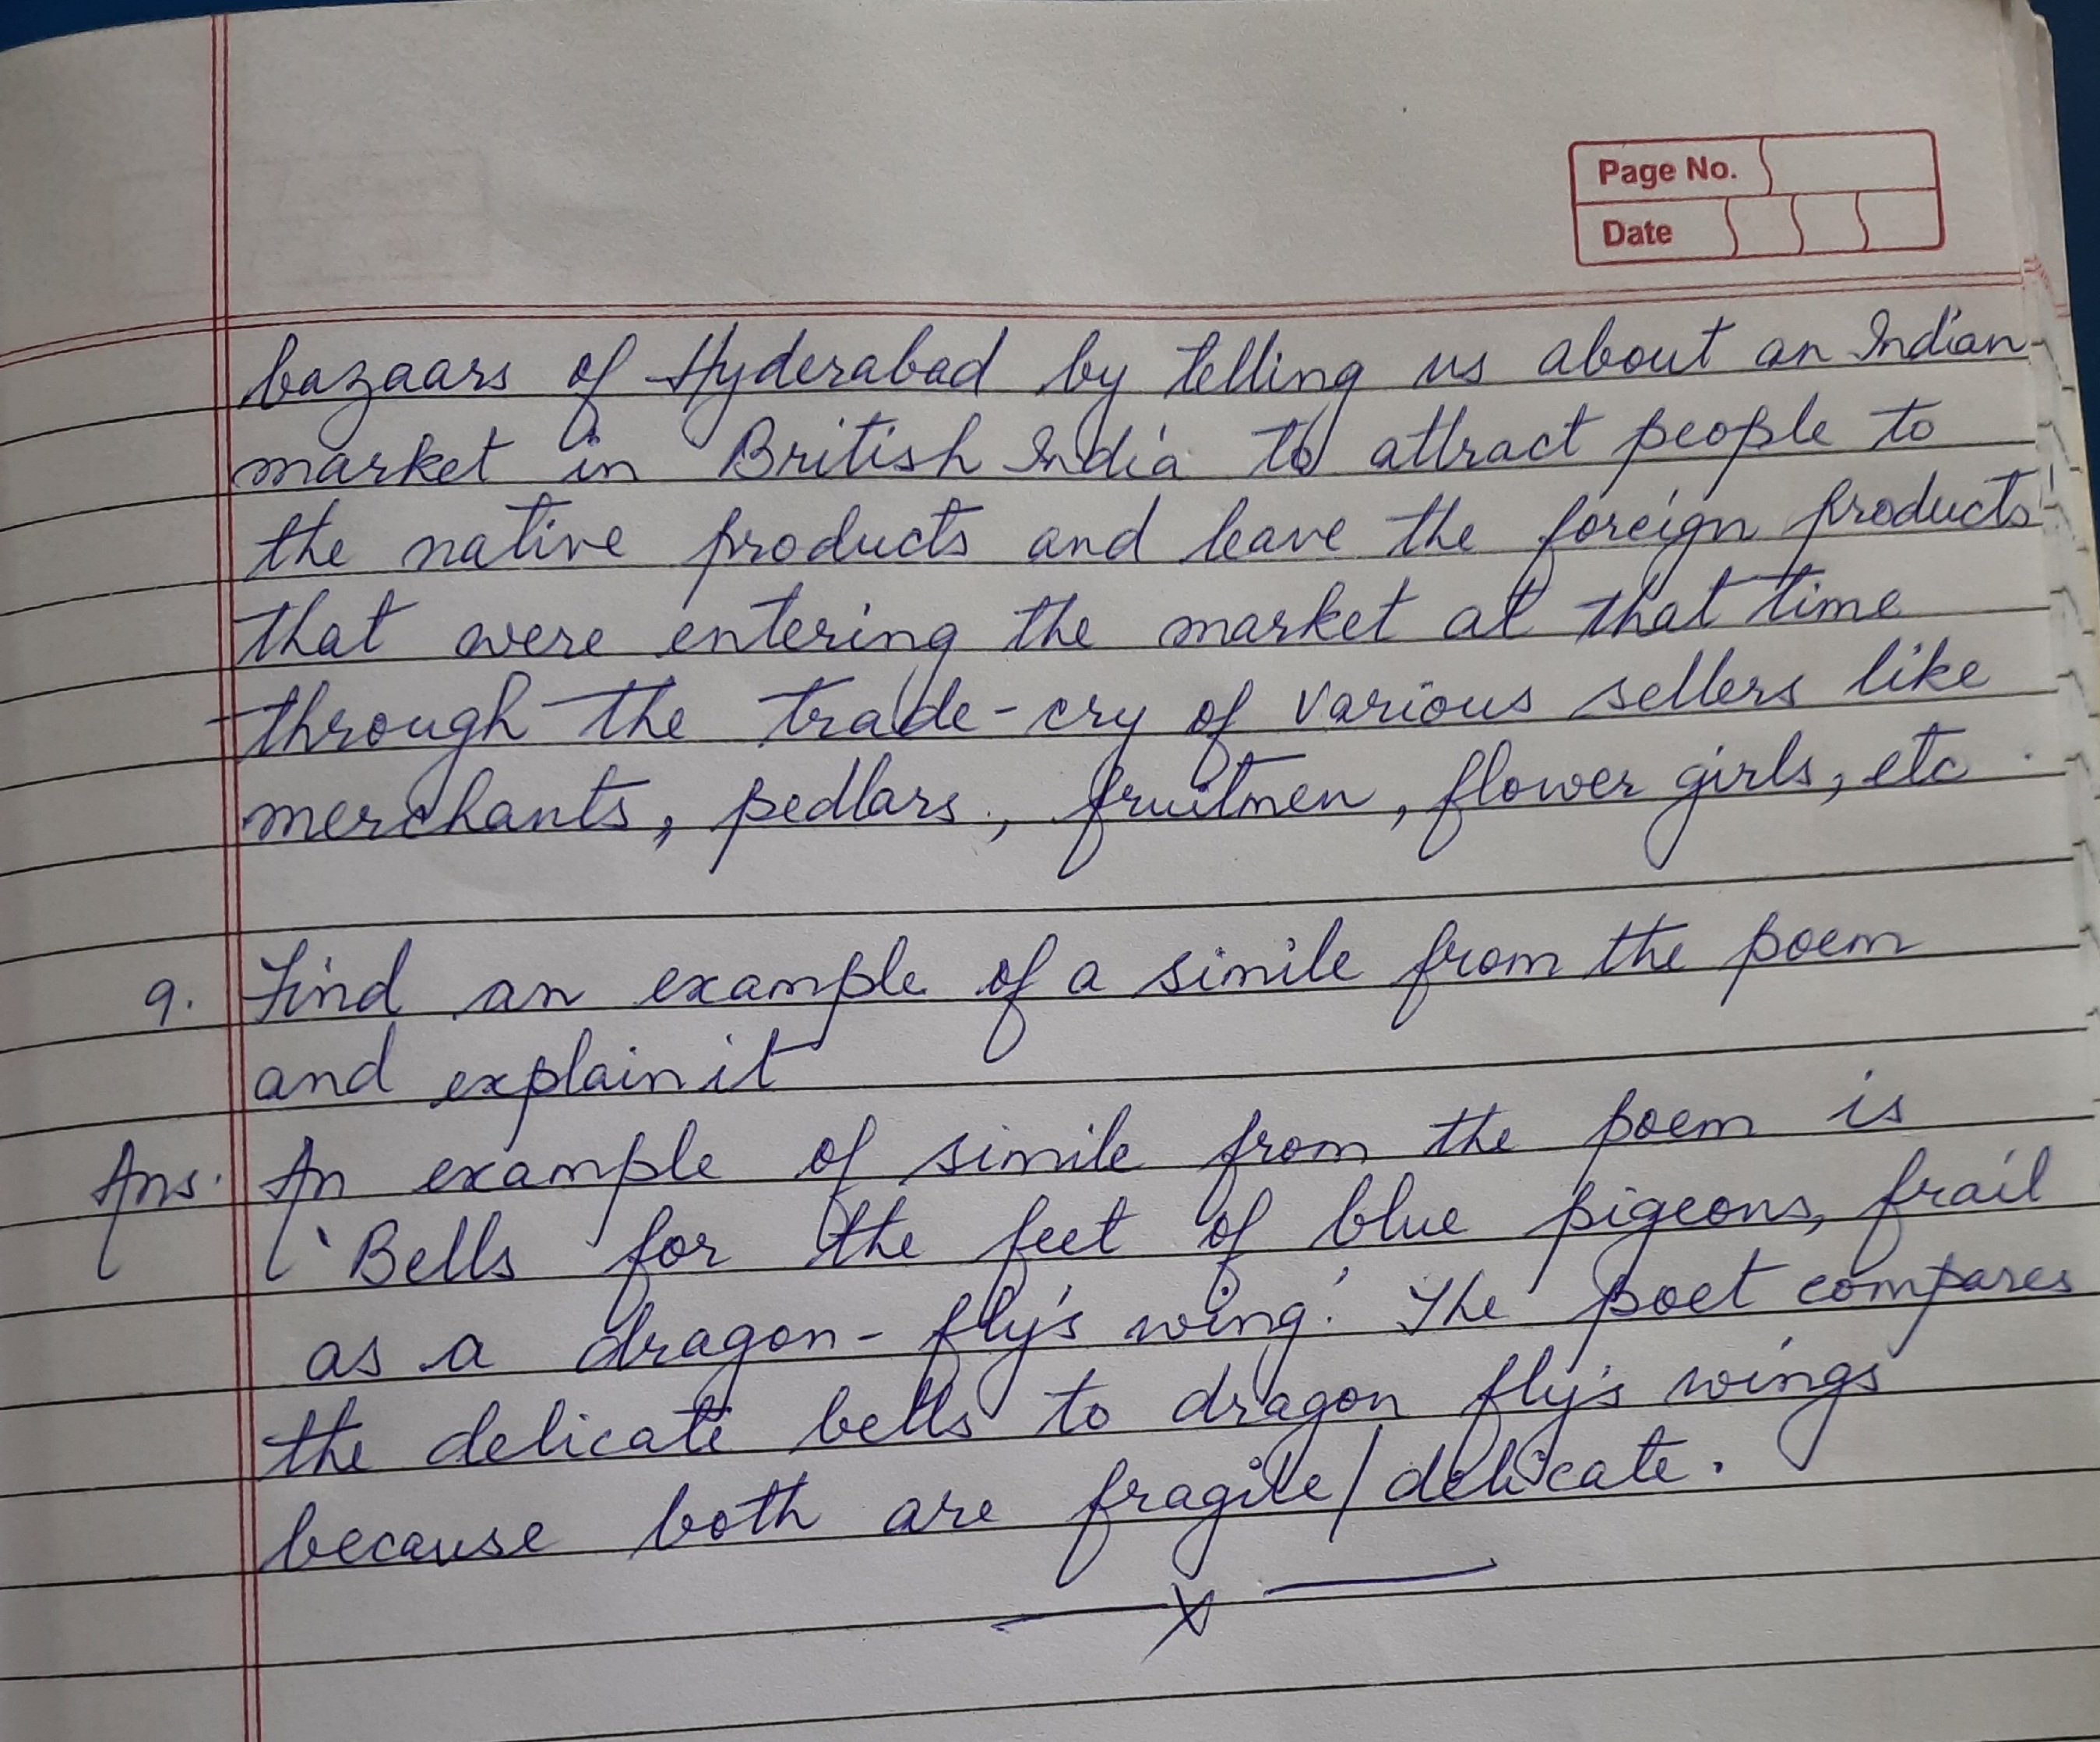 Page No.
Date
bazaars of Hyderabad by telling us about an Indian
market in British India to attract people to
the native products and leave the foreign products
that were entering the market at that time
through the trade-cry of various sellers like
merchants, pedlars, fruitmen, flower girls, etc.
9. Find an example of a simile from the poem
and explain it
Ans. An example of simile from the poem is
'Bells for the feet of blue pigeons, frail
as a dragon-fly's wing.' The poet compares
the delicate bells to dragon fly's wings
because both are fragile/delicate.
—x—